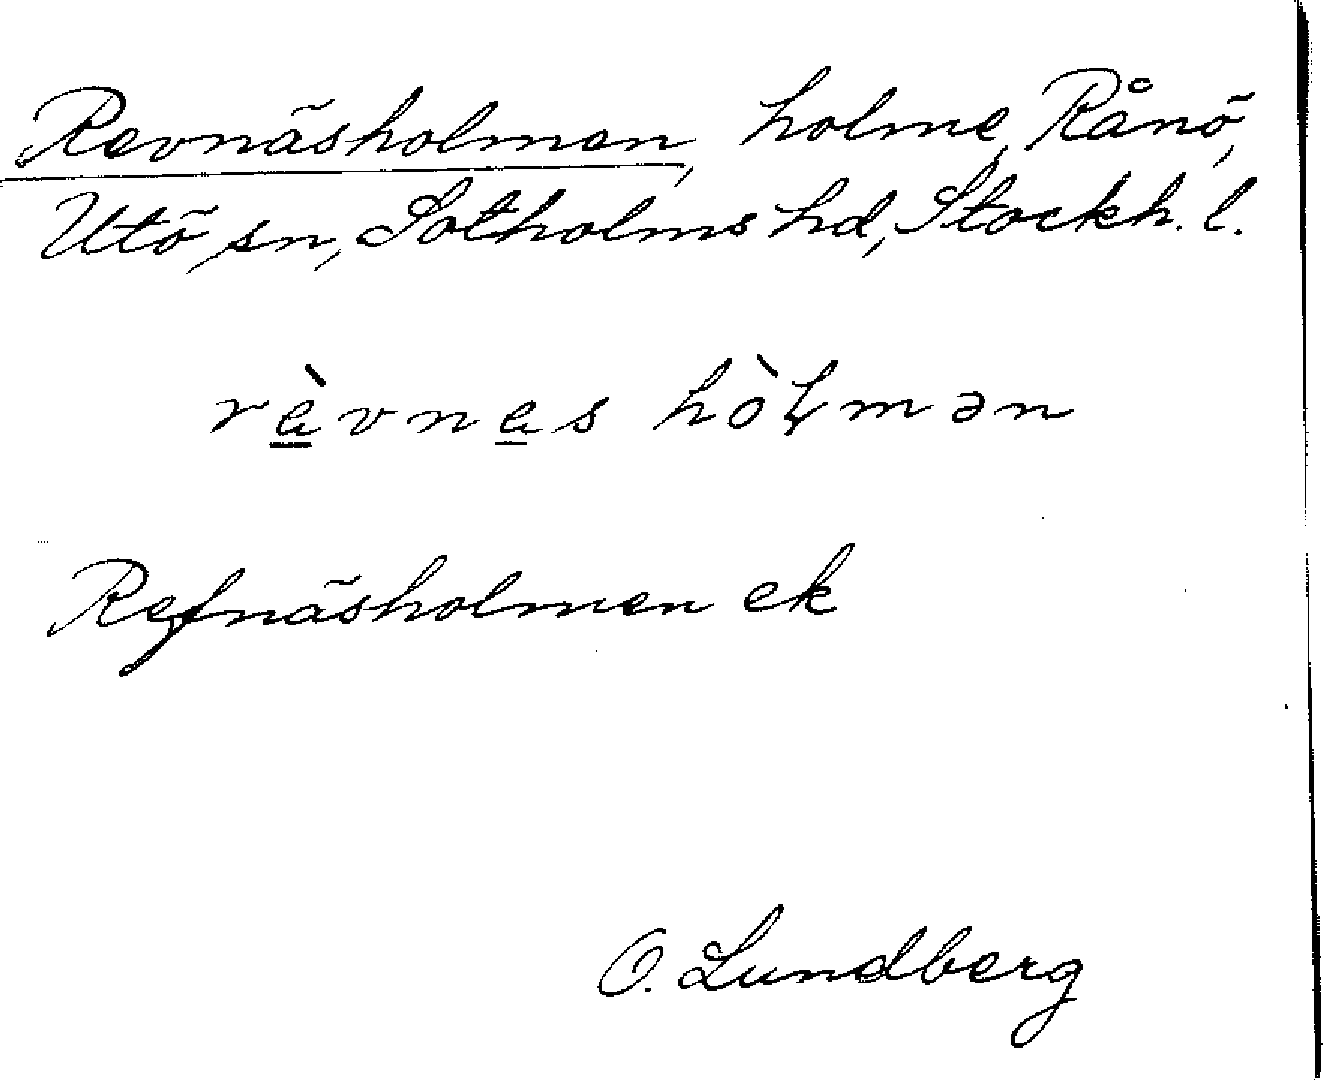 Revnäsholmen, holme, Rånö,
Utö sn, Sotholms hd, Stockh. l.
rὲvnes hòɭmən
Refnäsholmen ek
O. Lundberg